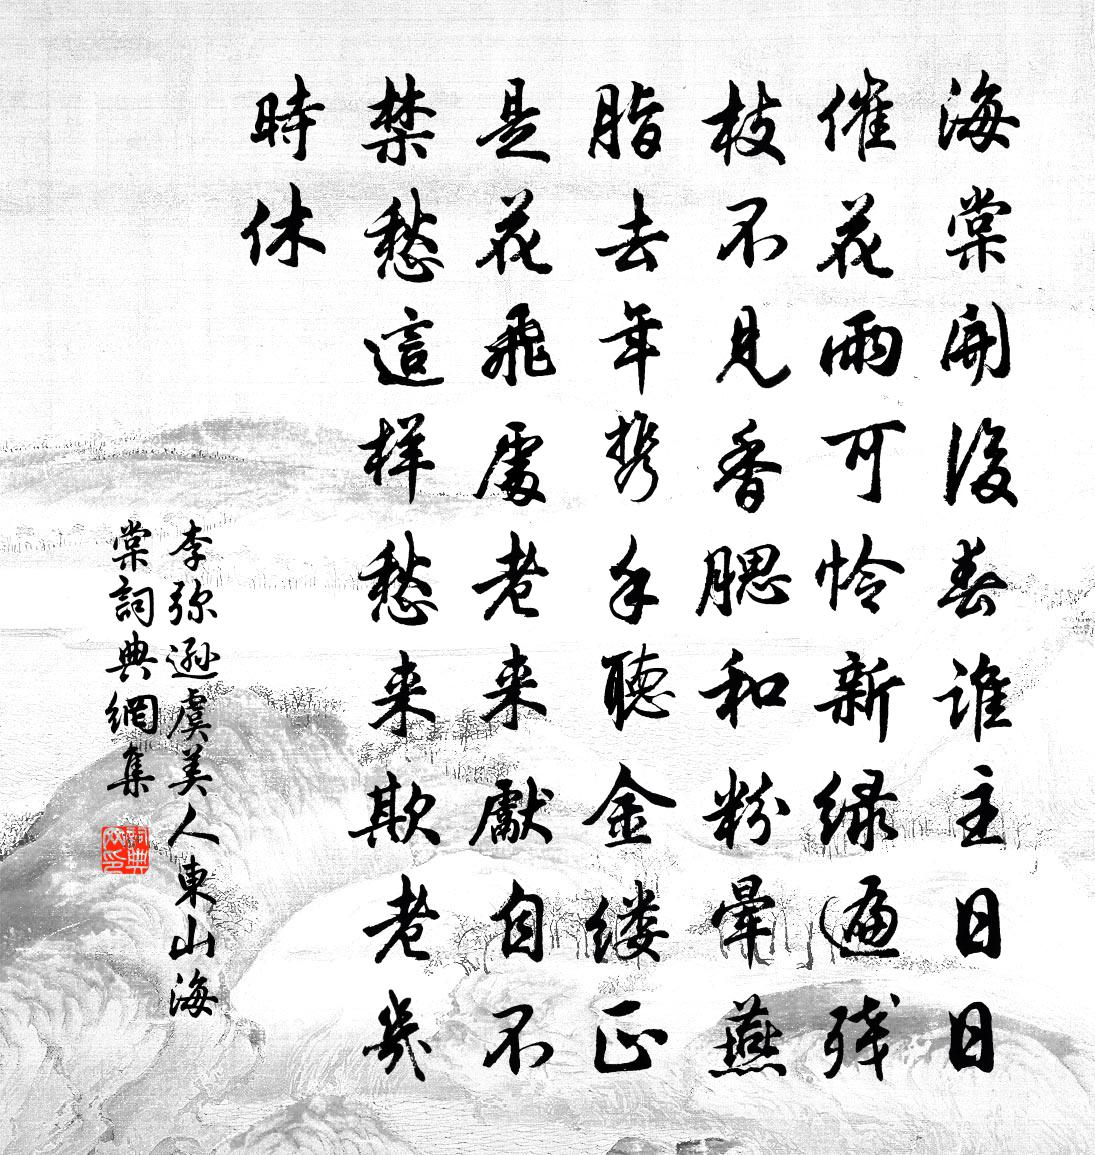 海棠開後春誰主日日
催花雨可怜新绿遍残
枝不見香腮和粉暈燕
脂去年携手聽金缕正
是花飛處老来獻自不
禁愁這样愁来欺老幾
時休
李弥遜虞美人東山海
棠詞典網集
詞典